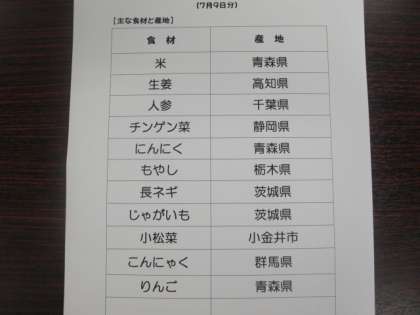 (7月9日分)
【主な食材と産地】
食材 産地
米 青森県
生姜 高知県
人参 千葉県
チンゲン菜 静岡県
にんにく 青森県
もやし 栃木県
長ネギ 茨城県
じゃがいも 茨城県
小松菜 小金井市
こんにゃく 群馬県
りんご 青森県